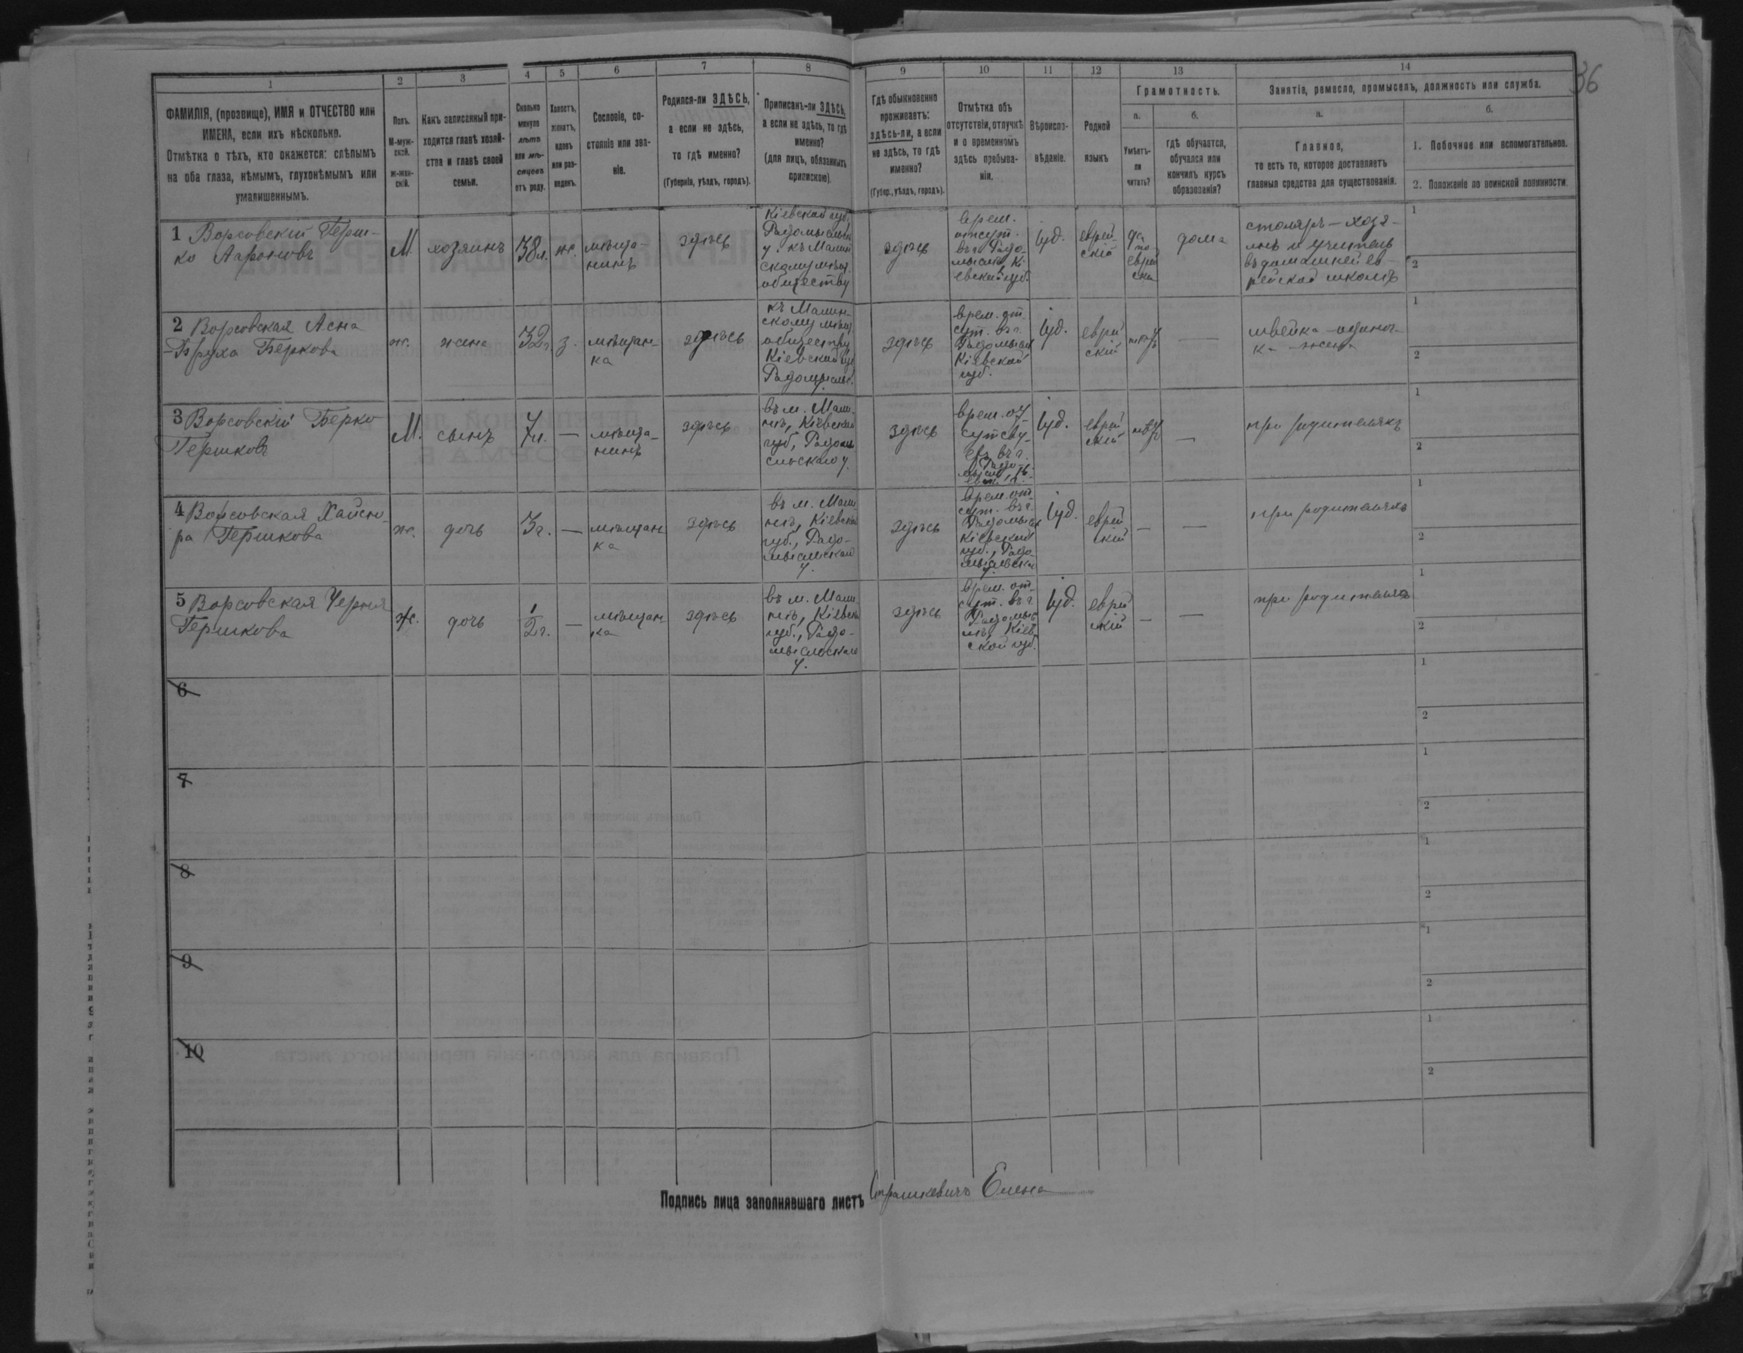 36
1 2 3 4 5 6 7 8 9 10 11 12 13 14
ФАМИЛІЯ, (прозвище), ИМЯ и ОТЧЕСТВО или
ИМЕНА, если ихъ нѣсколько.
Отмѣтка о тѣхъ, кто окажется: слѣпымъ
на оба глаза, нѣмымъ, глухонѣмымъ или
умалишеннымъ.
Полъ.
М-муж-
ской.
ж-жен-
скій.
Какъ записанный при-
ходится главѣ хозяй-
ства и главѣ своей
семьи.
Сколько
минуло
лѣтъ
или мѣ-
сяцевъ
отъ роду.
Холостъ,
женатъ,
вдовъ
или раз-
веденъ.
Сословіе, со-
стояніе или зва-
ніе.
Родился-ли ЗДѢСЬ,
а если не здѣсь,
то гдѣ именно?
(Губернія, уѣздъ, городъ).
Приписанъ-ли ЗДѢСЬ,
а если не здѣсь, то гдѣ
именно?
(для лицъ, обязанныхъ
припискою).
Гдѣ обыкновенно
проживаетъ:
здѣсь-ли, а если
не здѣсь, то гдѣ
именно?
(Губер., уѣздъ, городъ).
Отмѣтка объ
отсутствіи, отлучкѣ
и о временномъ
здѣсь пребыва-
ніи.
Вѣроиспо-
вѣданіе.
Родной
языкъ
Грамотность.
а.
Умѣетъ-
ли
читать?
б.
гдѣ обучается,
обучался или
кончилъ курсъ
образованія?
Занятіе, ремесло, промыселъ, должность или служба.
а.
Главное,
то есть то, которое доставляетъ
главныя средства для существованія.
б.
1. Побочное или вспомогательное.
2. Положеніе по воинской повинности.
1 Ворсовскій Герш-
ко Ароновъ
М.
хозяинъ
38 л.
ж.
мѣща-
нинъ
здѣсь
Кіевской губ.
Радомысльск.
у. къ Малин-
скому мѣщ.
обществу
здѣсь
врем.
отсут.
въ г. Радо-
мыслѣ Кі-
евской губ.
Іуд.
еврей-
скій
да
по
еврей
ски
дома
столяръ – хозя-
инъ и учитель
въ домашней ев-
рейской школѣ
1
2
2 Ворсовская Асна
-Бруха Беркова
ж.
жена
32 г.
з.
мѣщан-
ка
здѣсь
къ Малин-
скому мѣщ.
обществу
Кіевской губ.
Радомысльс.
здѣсь
врем. от-
сут. въ г.
Радомыслѣ
Кіевской
губ.
Іуд.
еврей
скій
—
швейка – одиноч-
ка – жена
1
2
3 Ворсовскій Берко
Гершковъ
М.
сынъ
7 л.
—
мѣща-
нинъ
здѣсь
въ м. Мали-
нѣ, Кіевской
губ., Радомы
сльскаго у.
здѣсь
Іуд.
еврей
скій
—
при родителяхъ
1
2
4 Ворсовская Хайсю-
ра Гершкова
ж.
дочь
3 г.
—
мѣщан
ка
здѣсь
въ м. Мали
нѣ, Кіевской
губ., Радо-
мысльскаго
у.
здѣсь
врем. от-
сут. въ г.
Радомыслѣ
Кіевской
губ., Радо-
мысльскаго
у.
Іуд.
еврей
скій
—
—
при родителяхъ
1
2
5 Ворсовская Черня
Гершкова
ж.
дочь
1/2 г.
—
мѣщан
ка
здѣсь
въ м. Мали
нѣ, Кіевской
губ., Радо-
мысльскаго
у.
здѣсь
врем. от-
сут. въ г.
Радомыс-
лѣ, Кіев-
ской губ.
Іуд.
еврей
скій
—
—
при родителяхъ
1
2
6
1
2
7
1
2
8
1
2
9
1
2
10
1
2
Подпись лица заполнявшаго листъ Страшкевичъ Елена